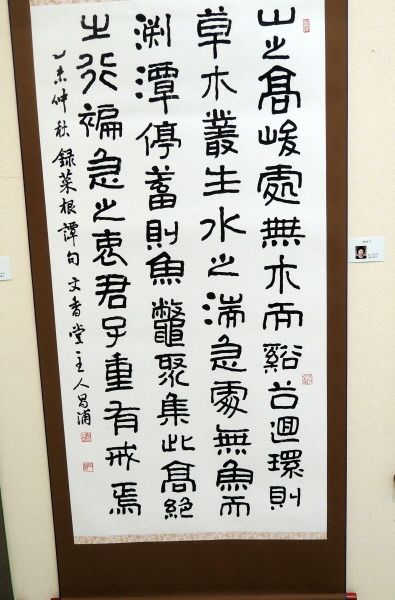 山之高峻處無木而谿谷迴環則
草木叢生水之湍急處無魚而
淵潭停蓄則魚鼈聚集此高絶
之行褊急之衷君子重有戒焉
乙未仲秋錄菜根譚句文香堂主人昌浦